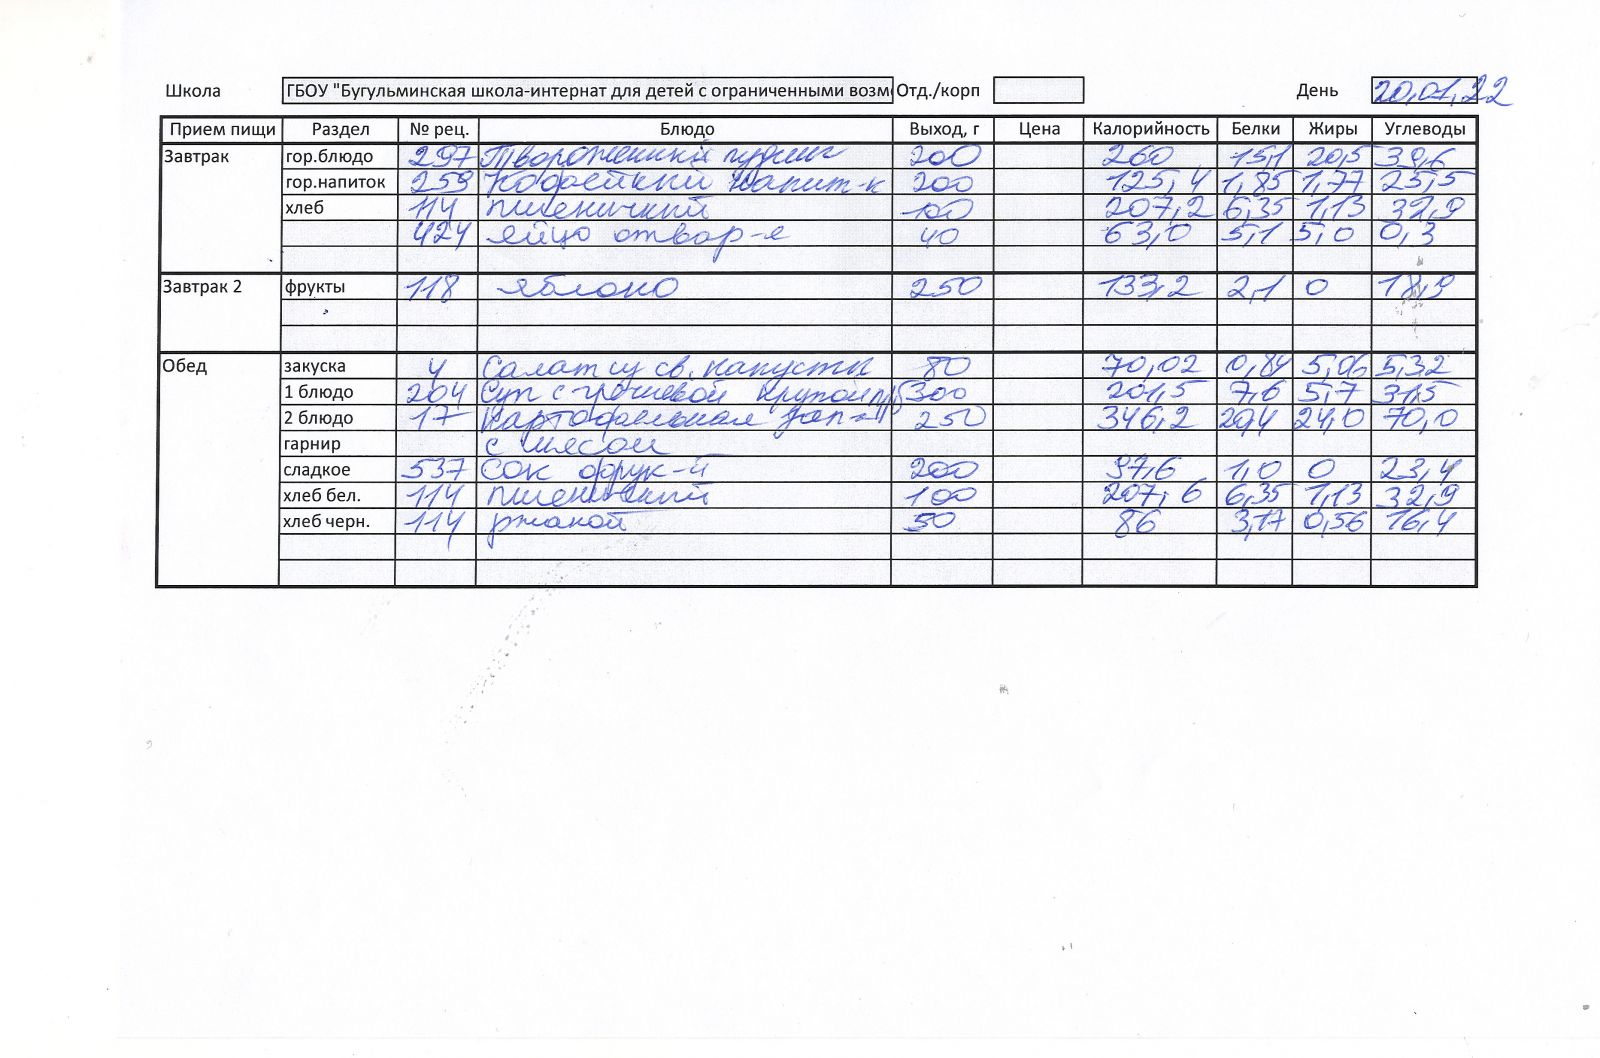 Школа ГБОУ "Бугульминская школа-интернат для детей с ограниченными возм Отд./корп День 20,01,22
Прием пищи Раздел № рец. Блюдо Выход, г Цена Калорийность Белки Жиры Углеводы
Завтрак гор.блюдо 297 Твороженный пудинг 200 260 15,1 20,5 39,6
гор.напиток 259 Кофейный напит-к 200 125,4 1,85 1,77 25,5
хлеб 114 пшеничный 100 207,2 6,35 1,13 32,9
424 яйцо отвар-е 40 63,0 5,1 5,0 0,3
Завтрак 2 фрукты 118 яблоко 250 133,2 2,1 0 18,9
Обед закуска 4 Салат из св. капусты 80 70,02 0,84 5,06 5,32
1 блюдо 204 Суп с гречневой крупой 300 201,5 7,6 5,7 31,5
2 блюдо 17 Картофельная зап-а 250 346,2 20,4 24,0 70,0
гарнир с мясом
сладкое 537 Сок фрук-й 200 97,6 1,0 0 23,4
хлеб бел. 114 пшеничный 100 207,6 6,35 1,13 32,9
хлеб черн. 114 ржаной 50 86 3,17 0,56 16,4